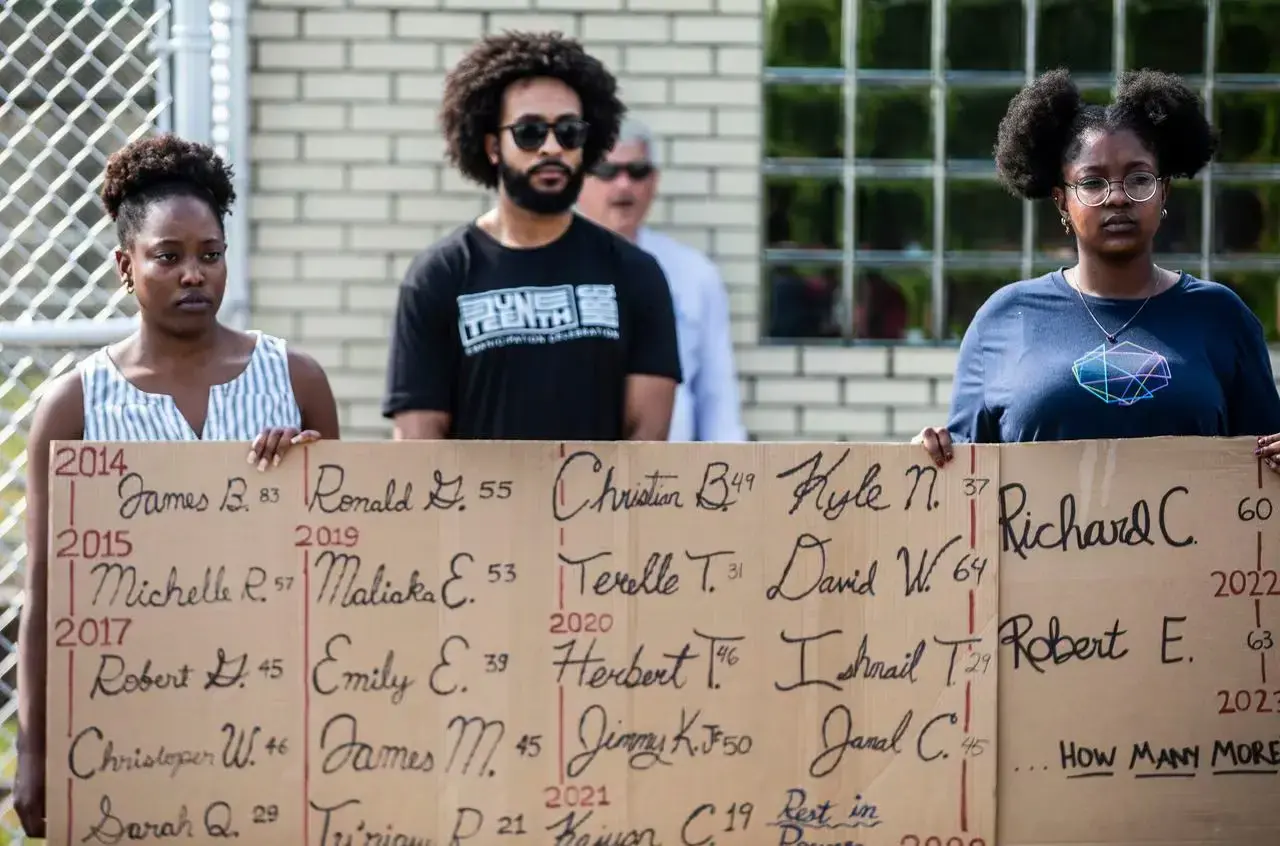 TEENTH
EMANCIPATION CELEBRATION
2014
James B. 83
2015
Michelle R. 57
2017
Robert G. 45
Christoper W. 46
Sarah Q. 29
Ronald G. 55
2019
Maliaka E. 53
Emily E. 39
James M. 45
21
Christian B. 49
Terelle T. 31
2020
Herbert T. 46
Jimmy K. Jr 50
2021
C. 19
Kyle N. 37
David W. 64
Ishmail T 29
Janal C. 45
Rest in
Power
Richard C. 60
2022
Robert E. 63
2023
... HOW MANY MORE